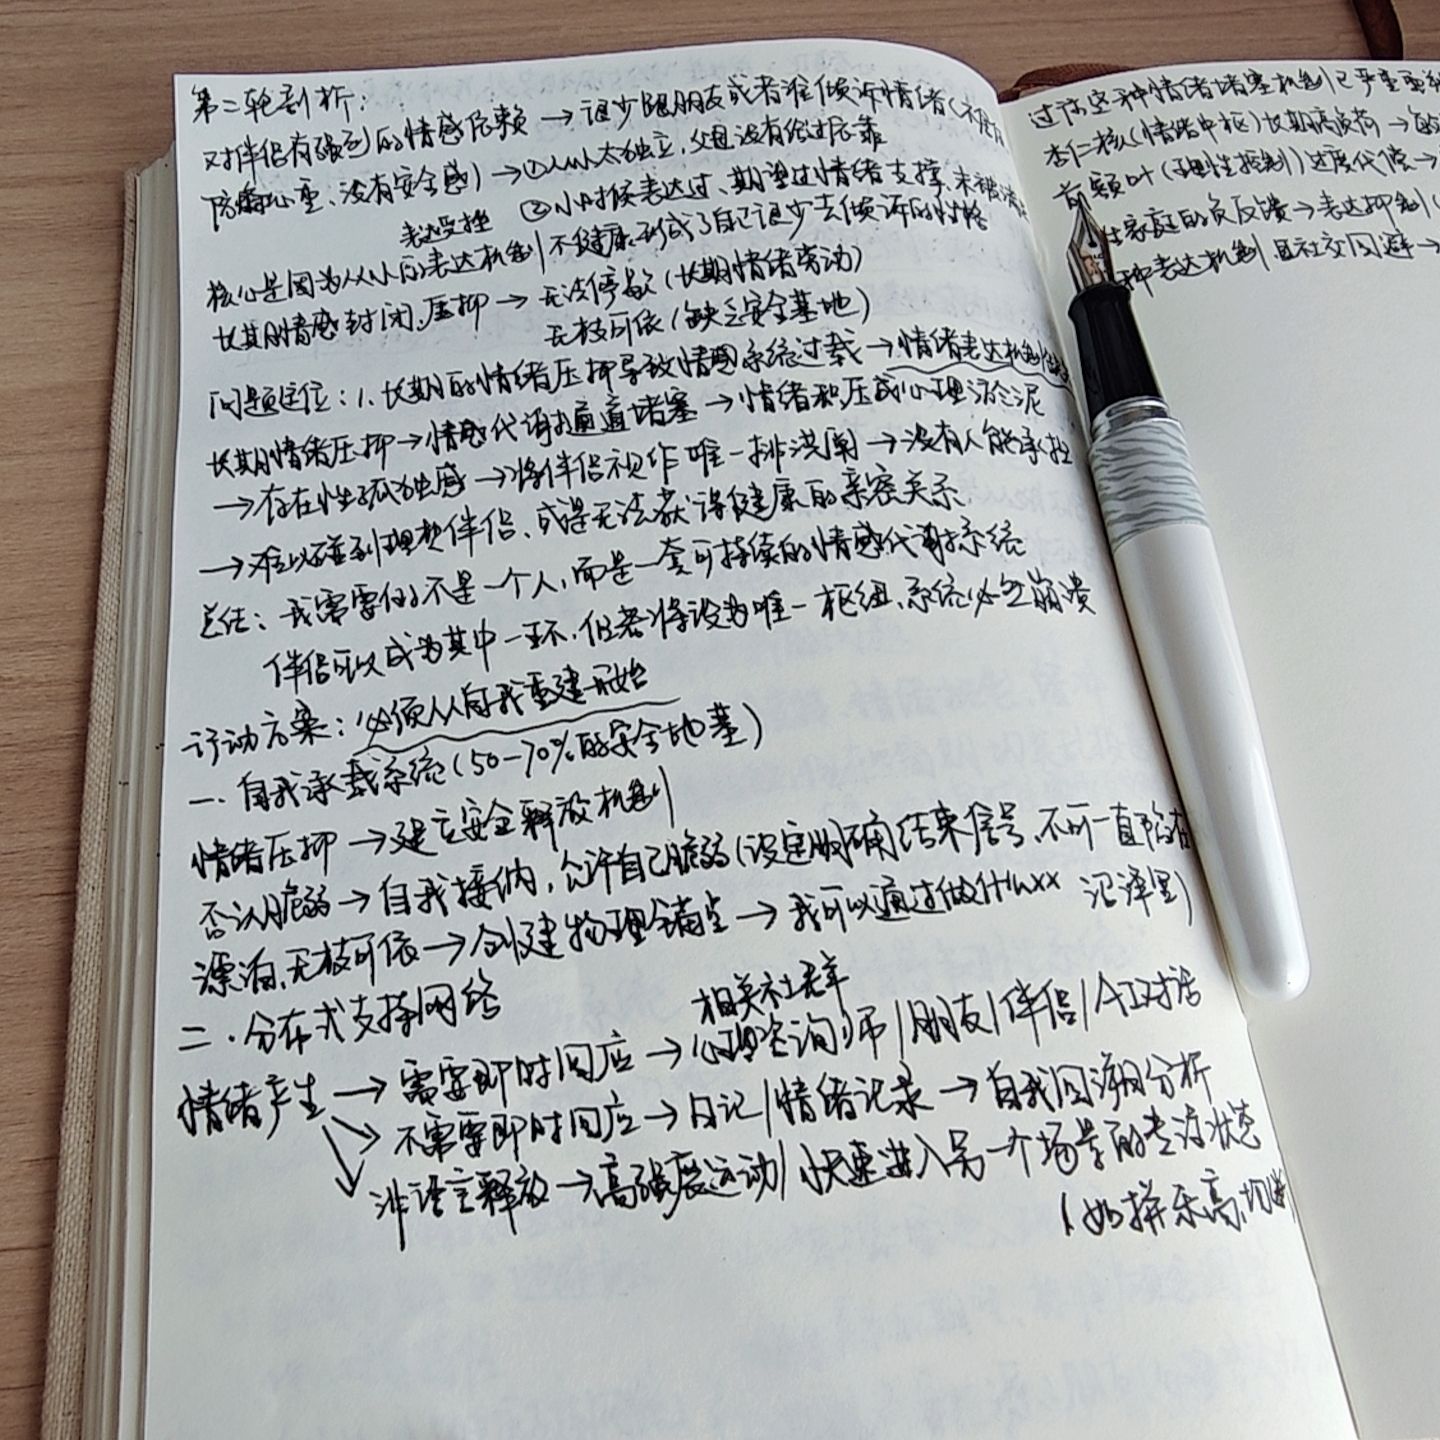 第二轮剖析：
对伴侣有强烈的情感依赖→很少跟朋友或者谁倾诉情绪(不信任
防备心重、没有安全感)→①从小太独立，父母没有给过依靠
②小时候表达过、期望过情绪支撑，未被满足
表达受挫
不健康，形成了自己很少去倾诉的性格
核心是因为从小的表达机制
长期情感封闭、压抑→无法停歇(长期情绪劳动)
无枝可依(缺乏安全基地)
问题定位：1.长期的情绪压抑导致情感系统过载→情绪表达机制
长期情绪压抑→情感代谢通道堵塞→情绪积压成心理淤泥
→存在性孤独感→将伴侣视作唯一排洪闸→没有人能承担
→难以碰到理想伴侣、或是无法获得健康的亲密关系
总结：我需要的不是一个人，而是一套可持续的情感代谢系统
伴侣可以成为其中一环，但若将设为唯一枢纽，系统必然崩溃
行动方案：必须从自我重建开始
一．自我承载系统(50-70%的安全地基)
情绪压抑→建立安全释放机制
否认脆弱→自我接纳，允许自己脆弱(设定明确结束信号，不可一直陷在
沼泽里)
漂泊、无枝可依→创建物理锚点→我可以通过做什么xx
二．分布式支持网络
相关社群
情绪产生→需要即时回应→心理咨询师/朋友/伴侣/AI对话
→不需要即时回应→日记/情绪记录→自我回溯分析
非语言释放→高强度运动/快速进入另一个场景的专注状态
(如拼乐高、切
过载这种情绪堵塞机制已严重影
杏仁核(情绪中枢)长期高负荷→
前额叶(理性控制)过度代偿→
家庭的负反馈→表达抑制
种表达机制，且社交回避→